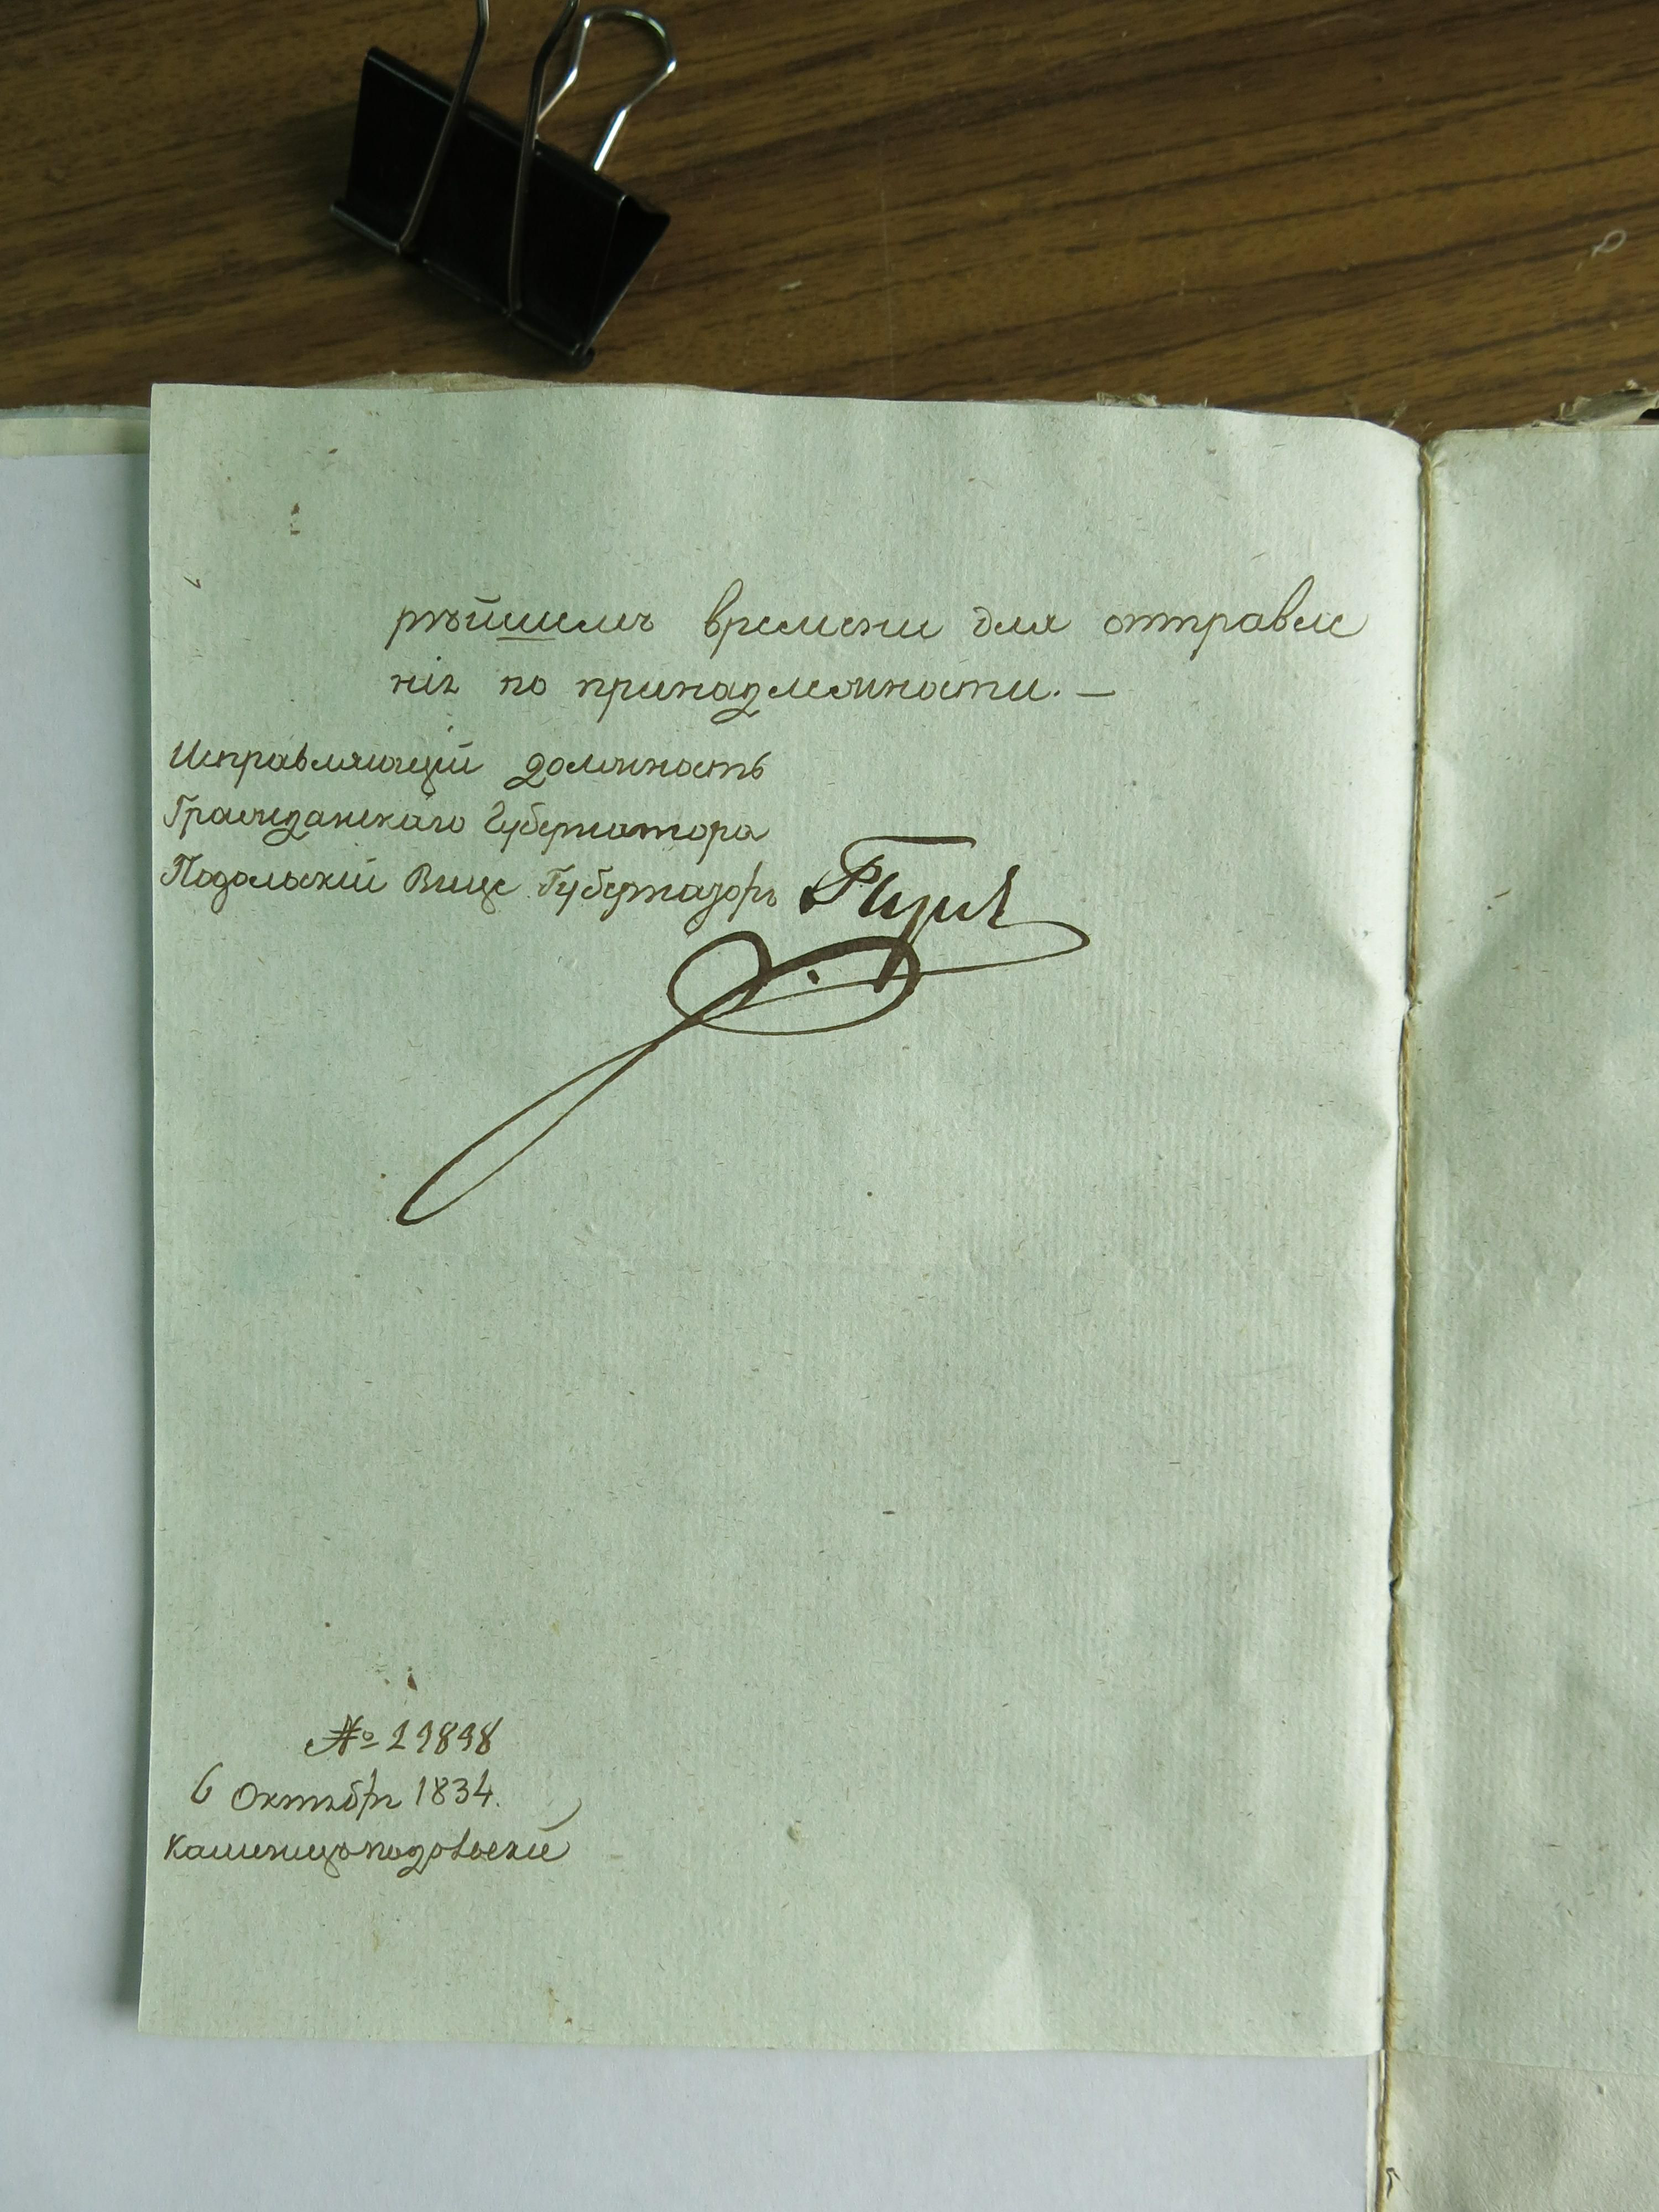 рѣйшемъ времени для отправле
нія по принадлежности. —
Исправляющій должность
Гражданскаго Губернатора
Подольскій Вице Губернаторъ
№ 19898
6 Октябр 1834.
Каменецъподольскій